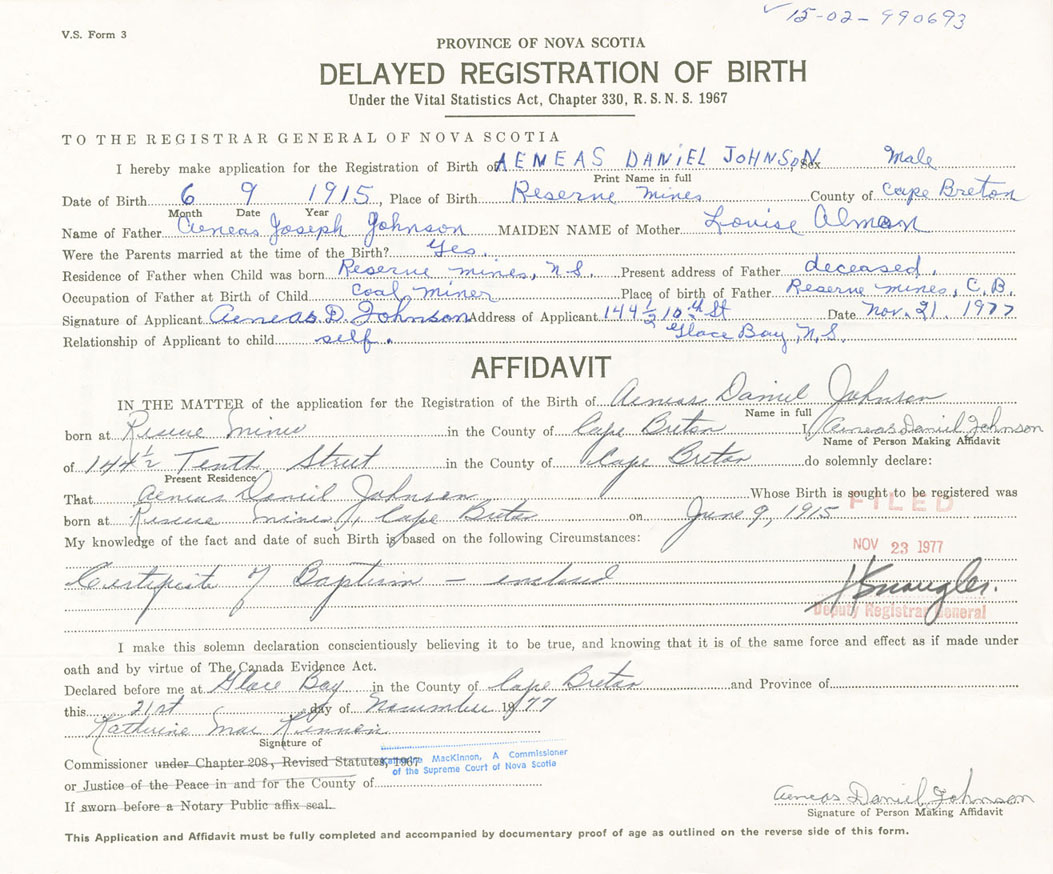 ✓ 15-02-990693
V.S. Form 3
PROVINCE OF NOVA SCOTIA
DELAYED REGISTRATION OF BIRTH
Under the Vital Statistics Act, Chapter 330, R.S.N.S. 1967
TO THE REGISTRAR GENERAL OF NOVA SCOTIA
I hereby make application for the Registration of Birth of AENEAS DANIEL JOHNSON, Sex Male
Print Name in full
Date of Birth 6 9 1915, Place of Birth Reserve Mines County of Cape Breton
Month Date Year
Name of Father Aeneas Joseph Johnson MAIDEN NAME of Mother Louise Almon
Were the Parents married at the time of the Birth? Yes.
Residence of Father when Child was born Reserve Mines, N.S. Present address of Father deceased.
Occupation of Father at Birth of Child Coal Miner Place of birth of Father Reserve Mines, C.B.
Signature of Applicant Aeneas D. Johnson Address of Applicant 144 1/2 10th St Date Nov. 21, 1977
Glace Bay, N.S.
Relationship of Applicant to child self.
AFFIDAVIT
IN THE MATTER of the application for the Registration of the Birth of Aeneas Daniel Johnson
Name in full
born at Reserve Mines in the County of Cape Breton I, Aeneas Daniel Johnson
Name of Person Making Affidavit
of 144 1/2 Tenth Street in the County of Cape Breton do solemnly declare:
Present Residence
That Aeneas Daniel Johnson Whose Birth is sought to be registered was
born at Reserve Mines, Cape Breton on June 9, 1915
FILED
My knowledge of the fact and date of such Birth is based on the following Circumstances:
NOV 23 1977
Certificate of Baptism - enclosed
Deputy Registrar General
I make this solemn declaration conscientiously believing it to be true, and knowing that it is of the same force and effect as if made under
oath and by virtue of The Canada Evidence Act.
Declared before me at Glace Bay in the County of Cape Breton and Province of
this 21st day of November 1977
Katherine MacKinnon
Signature of
Commissioner under Chapter 208, Revised Statutes, 1967
MacKinnon, A Commissioner
of the Supreme Court of Nova Scotia
or Justice of the Peace in and for the County of
If sworn before a Notary Public affix seal.
Aeneas Daniel Johnson
Signature of Person Making Affidavit
This Application and Affidavit must be fully completed and accompanied by documentary proof of age as outlined on the reverse side of this form.